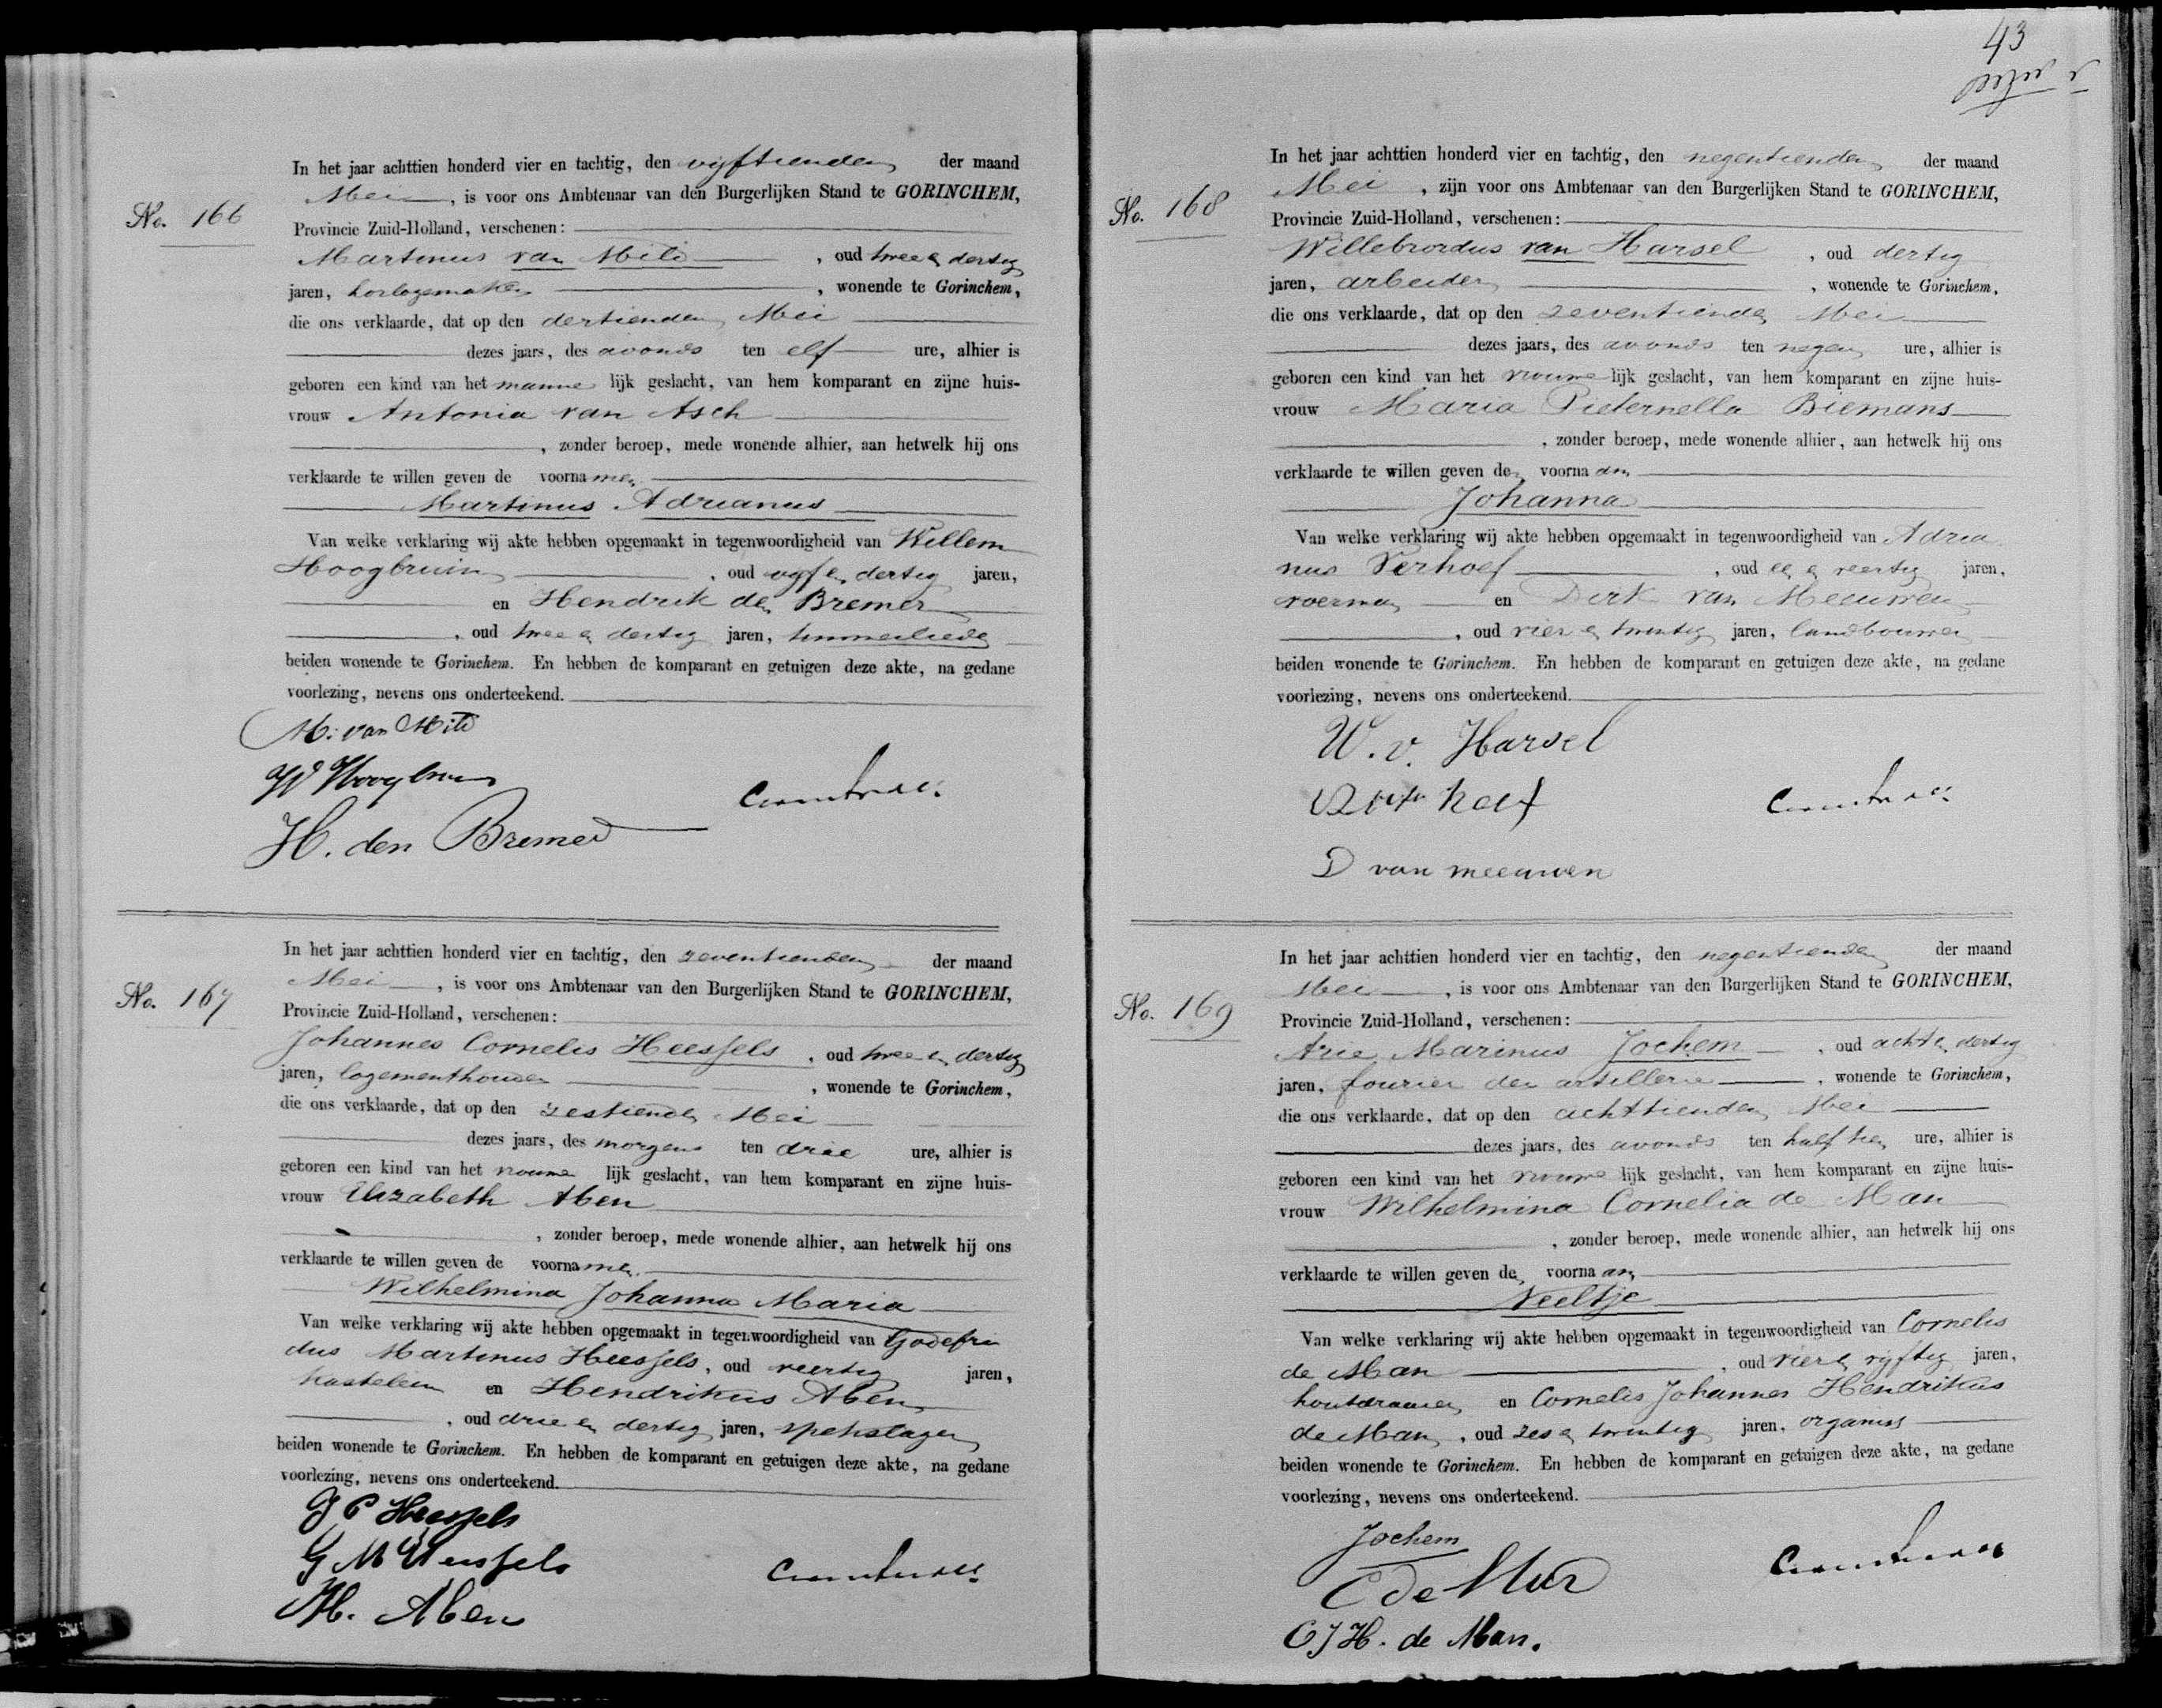 No. 166
In het jaar achttien honderd vier en tachtig, den vijftienden der maand
Mei, is voor ons Ambtenaar van den Burgerlijken Stand te GORINCHEM,
Provincie Zuid-Holland, verschenen:
Martinus van Mild, oud twee en dertig
jaren, horlogemaker, wonende te Gorinchem,
die ons verklaarde, dat op den dertienden Mei
dezes jaars, des avonds ten elf ure, alhier is
geboren een kind van het manne lijk geslacht, van hem komparant en zijne huis-
vrouw Antonia van Asch
, zonder beroep, mede wonende alhier, aan hetwelk hij ons
verklaarde te willen geven de voornamen
Martinus Adrianus
Van welke verklaring wij akte hebben opgemaakt in tegenwoordigheid van Willem
Hoogbruin, oud vijf en dertig jaren,
en Hendrik den Bremer
, oud twee en dertig jaren, timmerlieden
beiden wonende te Gorinchem. En hebben de komparant en getuigen deze akte, na gedane
voorlezing, nevens ons onderteekend.
M. van Mild
W Hoogbruin
H. den Bremer
No. 167
In het jaar achttien honderd vier en tachtig, den zeventienden der maand
Mei, is voor ons Ambtenaar van den Burgerlijken Stand te GORINCHEM,
Provincie Zuid-Holland, verschenen:
Johannes Cornelis Heessels, oud twee en dertig
jaren, logementhouder, wonende te Gorinchem,
die ons verklaarde, dat op den zestienden Mei
dezes jaars, des morgens ten drie ure, alhier is
geboren een kind van het vrouwe lijk geslacht, van hem komparant en zijne huis-
vrouw Elizabeth Aben
, zonder beroep, mede wonende alhier, aan hetwelk hij ons
verklaarde te willen geven de voornamen
Wilhelmina Johanna Maria
Van welke verklaring wij akte hebben opgemaakt in tegenwoordigheid van Godefri
dus Martinus Heessels, oud veertig jaren,
kastelein en Hendrikus Aben
, oud drie en dertig jaren, spekslager
beiden wonende te Gorinchem. En hebben de komparant en getuigen deze akte, na gedane
voorlezing, nevens ons onderteekend.
J C Heessels
G M Heessels
H. Aben
43
No. 168
In het jaar achttien honderd vier en tachtig, den negentienden der maand
Mei, zijn voor ons Ambtenaar van den Burgerlijken Stand te GORINCHEM,
Provincie Zuid-Holland, verschenen:
Willebrordus van Harsel, oud dertig
jaren, arbeider, wonende te Gorinchem,
die ons verklaarde, dat op den zeventienden Mei
dezes jaars, des avonds ten negen ure, alhier is
geboren een kind van het vrouwe lijk geslacht, van hem komparant en zijne huis-
vrouw Maria Pieternella Biemans
, zonder beroep, mede wonende alhier, aan hetwelk hij ons
verklaarde te willen geven den voornaam
Johanna
Van welke verklaring wij akte hebben opgemaakt in tegenwoordigheid van Adria
nus Verhoef, oud een en veertig jaren,
voerman en Dirk van Meeuwen
, oud vier en twintig jaren, landbouwer
beiden wonende te Gorinchem. En hebben de komparant en getuigen deze akte, na gedane
voorlezing, nevens ons onderteekend.
W. v. Harsel
D van meeuwen
No. 169
In het jaar achttien honderd vier en tachtig, den negentienden der maand
Mei, is voor ons Ambtenaar van den Burgerlijken Stand te GORINCHEM,
Provincie Zuid-Holland, verschenen:
Arie Marinus Jochem, oud acht en dertig
jaren, fourier der artillerie, wonende te Gorinchem,
die ons verklaarde, dat op den achttienden Mei
dezes jaars, des avonds ten half tien ure, alhier is
geboren een kind van het vrouwe lijk geslacht, van hem komparant en zijne huis-
vrouw Wilhelmina Cornelia de Man
, zonder beroep, mede wonende alhier, aan hetwelk hij ons
verklaarde te willen geven den voornaam
Neeltje
Van welke verklaring wij akte hebben opgemaakt in tegenwoordigheid van Cornelis
de Man, oud vier en vijftig jaren,
houtdraaier en Cornelis Johannes Hendrikus
de Man, oud zes en twintig jaren, organist
beiden wonende te Gorinchem. En hebben de komparant en getuigen deze akte, na gedane
voorlezing, nevens ons onderteekend.
Jochem
C de Man
C J H. de Man.